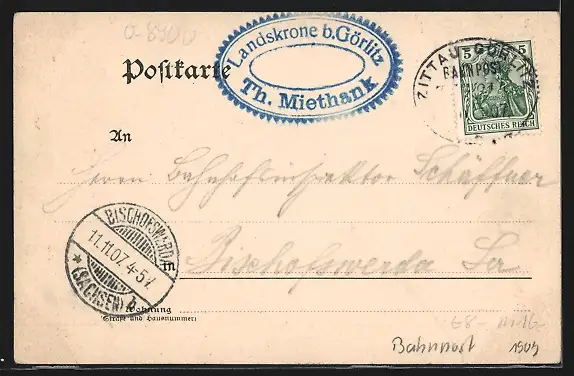 0-8900
Landskrone b. Görlitz
Th. Miethank
Postkarte
ZITTAU GÖRLITZ
BAHNPOST
5 5
DEUTSCHES REICH
An
Herrn Bahnhofsinspektor Schäffner
Bischofswerda Sa
BISCHOFSWERDA
11.11.07. 4-5V.
* (SACHSEN) b
Wohnung
(Straße und Hausnummer)
Bahnpost 1909